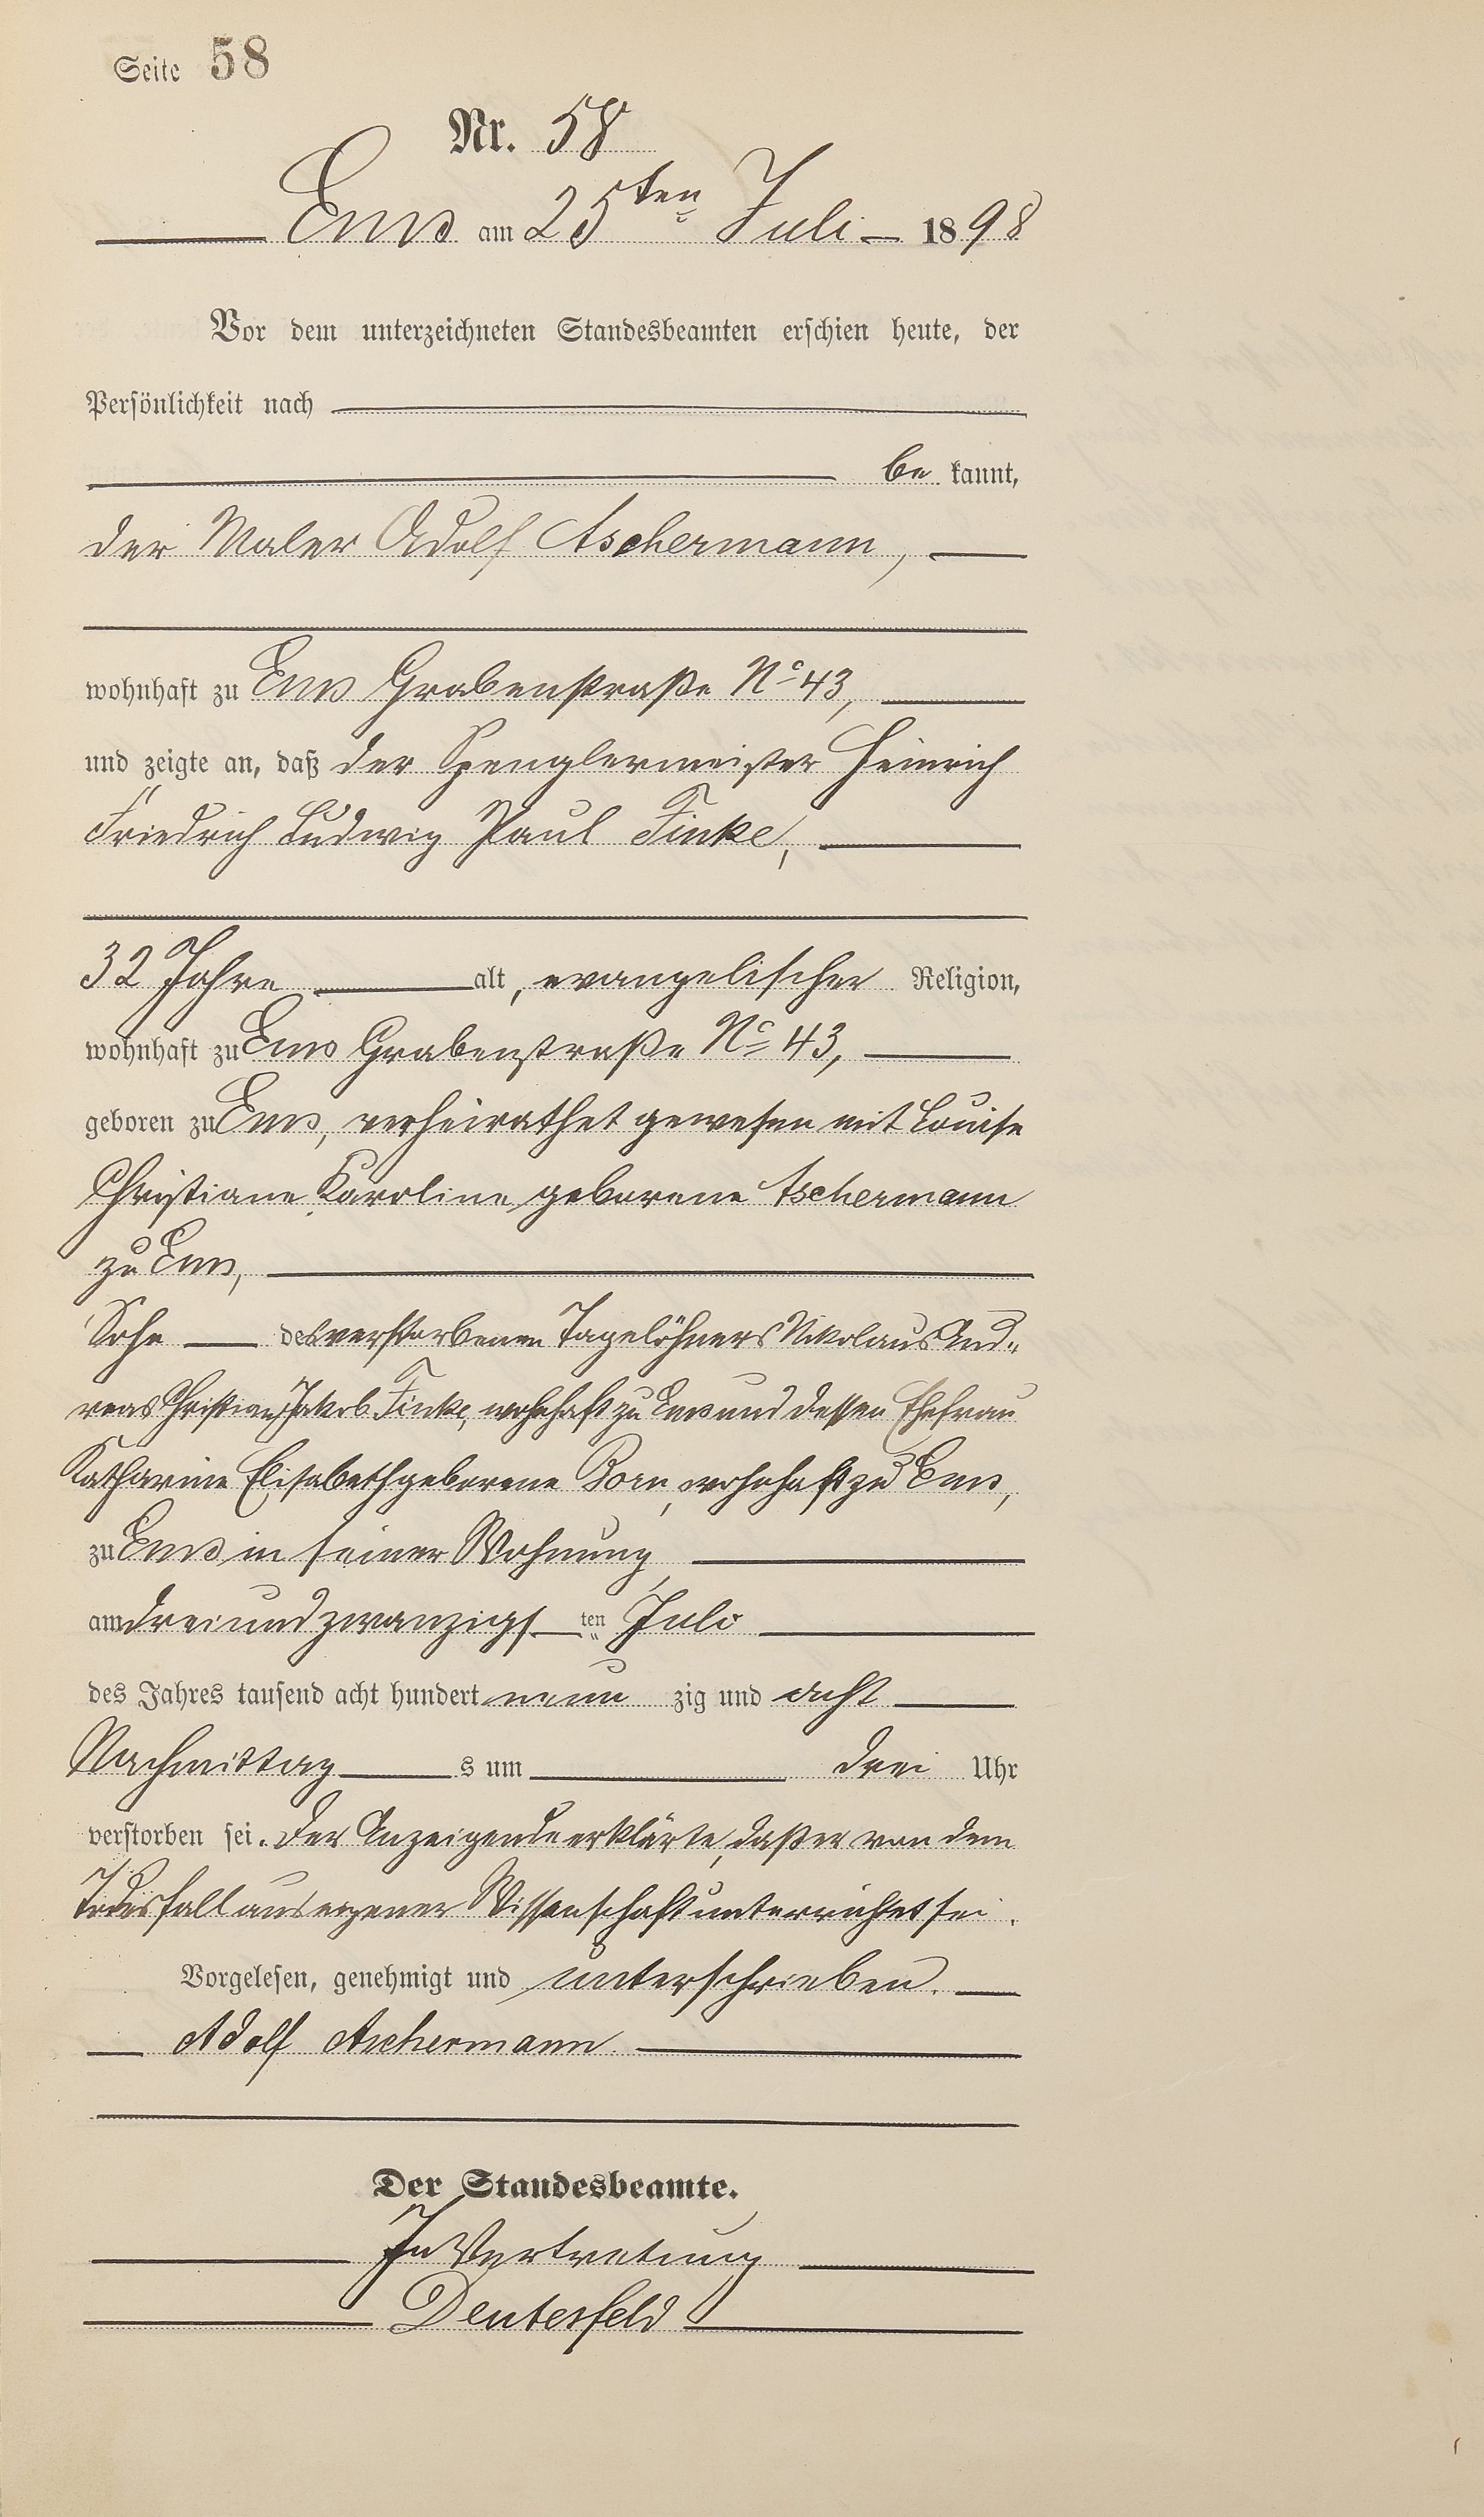 Seite 58
Nr. 58
Ems am 25ten Juli 1898
Vor dem unterzeichneten Standesbeamten erschien heute, der
Persönlichkeit nach
be kannt,
der Maler Adolf Aschermann,
wohnhaft zu Ems Grabenstraße No 43,
und zeigte an, daß der Spenglermeister Heinrich
Friedrich Ludwig Paul Finke,
32 Jahre alt, evangelischer Religion,
wohnhaft zu Ems Grabenstraße No 43,
geboren zu Ems, verheirathet gewesen mit Louise
Christiane Karoline geborene Aschermann
zu Ems,
Sohn des verstorbenen Tagelöhners Nikolaus And-
reas Christian Jakob Finke, wohnhaft zu Ems und dessen Ehefrau
Katharine Elisabeth geborene Born, wohnhaft zu Ems,
zu Ems in seiner Wohnung,
am dreiundzwanzigs ten Juli
des Jahres tausend acht hundert neun zig und acht
Nachmittag s um drei Uhr
verstorben sei. Der Anzeigende erklärte, daß er von dem
Todesfall aus eigener Wissenschaft unterrichtet sei.
Vorgelesen, genehmigt und unterschrieben.
Adolf Aschermann.
Der Standesbeamte.
In Vertretung
Deutesfeld